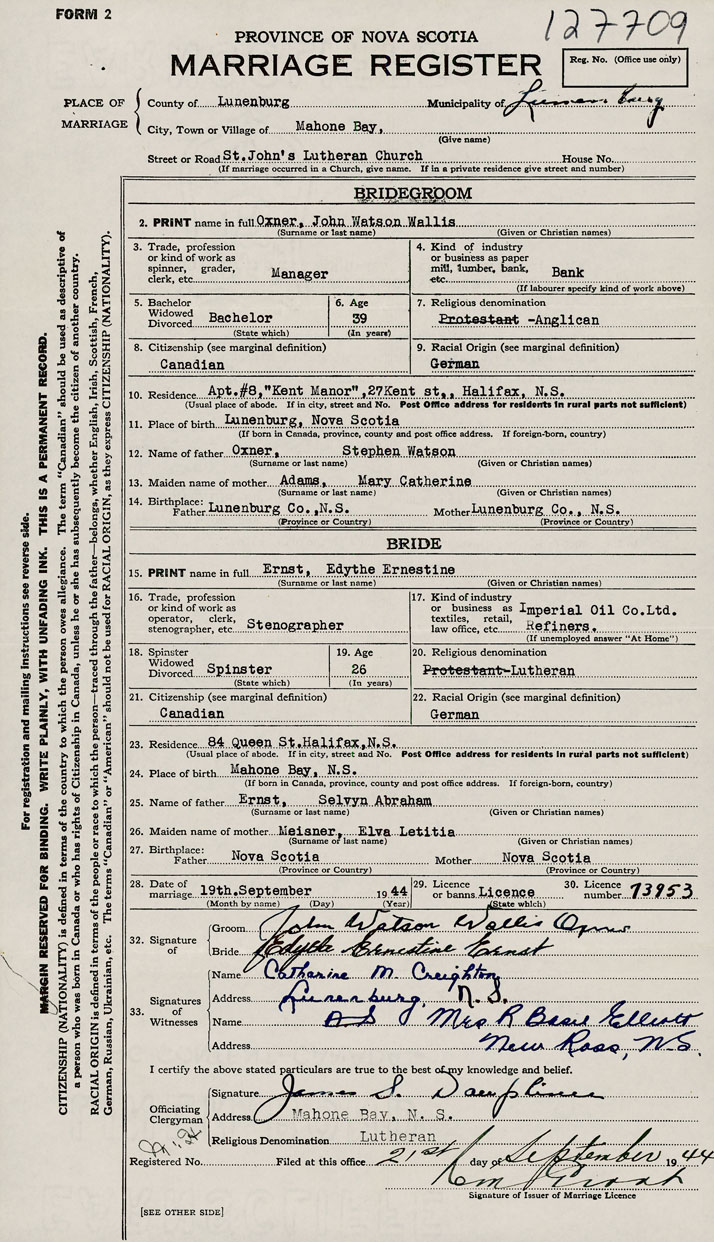 FORM 2
127709
PROVINCE OF NOVA SCOTIA
MARRIAGE REGISTER
Reg. No. (Office use only)
PLACE OF MARRIAGE
County of Lunenburg Municipality of Lunenburg
City, Town or Village of Mahone Bay,
(Give name)
Street or Road St.John's Lutheran Church House No.
(If marriage occurred in a Church, give name. If in a private residence give street and number)
BRIDEGROOM
2. PRINT name in full Oxner, John Watson Wallis
(Surname or last name) (Given or Christian names)
3. Trade, profession or kind of work as spinner, grader, clerk, etc. Manager
4. Kind of industry or business as paper mill, lumber, bank, etc. Bank
(If labourer specify kind of work above)
5. Bachelor Widowed Divorced Bachelor
(State which)
6. Age 39
(In years)
7. Religious denomination
Protestant -Anglican
8. Citizenship (see marginal definition)
Canadian
9. Racial Origin (see marginal definition)
German
10. Residence Apt.#8,"Kent Manor",27Kent st., Halifax, N.S.
(Usual place of abode. If in city, street and No. Post Office address for residents in rural parts not sufficient)
11. Place of birth Lunenburg, Nova Scotia
(If born in Canada, province, county and post office address. If foreign-born, country)
12. Name of father Oxner, Stephen Watson
(Surname or last name) (Given or Christian names)
13. Maiden name of mother Adams, Mary Catherine
(Surname or last name) (Given or Christian names)
14. Birthplace: Father Lunenburg Co.,N.S. Mother Lunenburg Co., N.S.
(Province or Country) (Province or Country)
BRIDE
15. PRINT name in full Ernst, Edythe Ernestine
(Surname or last name) (Given or Christian names)
16. Trade, profession or kind of work as operator, clerk, stenographer, etc. Stenographer
17. Kind of industry or business as textiles, retail, law office, etc. Imperial Oil Co.Ltd. Refiners.
(If unemployed answer "At Home")
18. Spinster Widowed Divorced Spinster
(State which)
19. Age 26
(In years)
20. Religious denomination
Protestant-Lutheran
21. Citizenship (see marginal definition)
Canadian
22. Racial Origin (see marginal definition)
German
23. Residence 84 Queen St.Halifax,N.S.
(Usual place of abode. If in city, street and No. Post Office address for residents in rural parts not sufficient)
24. Place of birth Mahone Bay, N.S.
(If born in Canada, province, county and post office address. If foreign-born, country)
25. Name of father Ernst, Selvyn Abraham
(Surname or last name) (Given or Christian names)
26. Maiden name of mother Meisner, Elva Letitia
(Surname or last name) (Given or Christian names)
27. Birthplace: Father Nova Scotia Mother Nova Scotia
(Province or Country) (Province or Country)
28. Date of marriage 19th.September 1944
(Month by name) (Day) (Year)
29. Licence or banns Licence
(State which)
30. Licence number 73953
32. Signature of
Groom John Watson Wallis Oxner
Bride Edythe Ernestine Ernst
33. Signatures of Witnesses
Name Catharine M. Creighton
Address Lunenburg, N.S.
Name Mrs R Basil Elliott
Address New Ross, N.S.
I certify the above stated particulars are true to the best of my knowledge and belief.
Officiating Clergyman
Signature James S. Dauphinee
Address Mahone Bay, N. S.
Religious Denomination Lutheran
Registered No. Filed at this office 21st day of September 1944
Signature of Issuer of Marriage Licence
[SEE OTHER SIDE]
For registration and mailing instructions see reverse side.
MARGIN RESERVED FOR BINDING. WRITE PLAINLY, WITH UNFADING INK. THIS IS A PERMANENT RECORD.
CITIZENSHIP (NATIONALITY) is defined in terms of the country to which the person owes allegiance. The term "Canadian" should be used as descriptive of
a person who was born in Canada or who has rights of Citizenship in Canada, unless he or she has subsequently become the citizen of another country.
RACIAL ORIGIN is defined in terms of the people or race to which the person—traced through the father—belongs, whether English, Irish, Scottish, French,
German, Russian, Ukrainian, etc. The terms "Canadian" or "American" should not be used for RACIAL ORIGIN, as they express CITIZENSHIP (NATIONALITY).